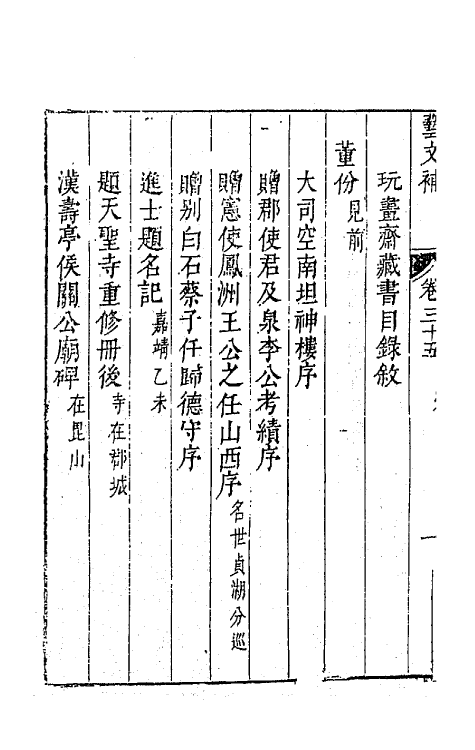 藝文補 卷三十五 一
玩畫齋藏書目錄敘
董份見前
大司空南坦神樓序
贈郡使君及泉李公考績序
贈憲使鳳洲王公之任山西序名世貞湖分巡
贈别白石蔡子任歸德守序
進士題名記嘉靖乙未
題天聖寺重修冊後寺在郡城
漢壽亭侯關公廟碑在毘山